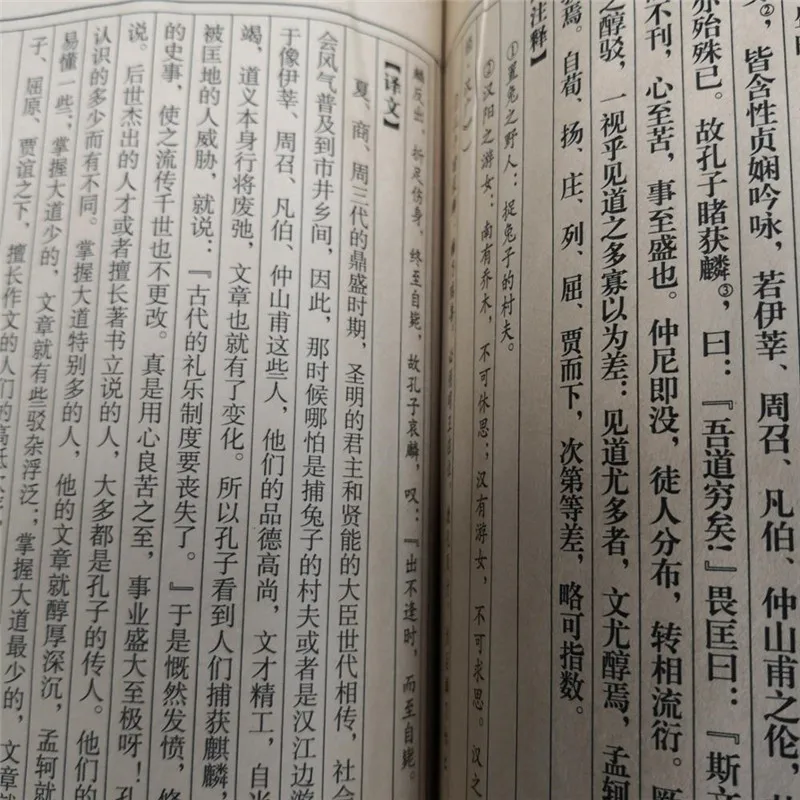 ②，皆含性贞娴吟咏，若伊莘、周召、凡伯、仲山甫之伦，
亦殆殊已。故孔子睹获麟③，曰：『吾道穷矣！』畏匡曰：『斯文
不刊，心至苦，事至盛也。仲尼即没，徒人分布，转相流衍。厥
之醇驳，一视乎见道之多寡以为差：见道尤多者，文尤醇焉，孟轲
焉。自荀、扬、庄、列、屈、贾而下，次第等差，略可指数。
【注释】
①罝兔之野人：捉兔子的村夫。
②汉阳之游女：南有乔木，不可休思；汉有游女，不可求思。汉之
麟反出，折足伤身，终至自毙，故孔子哀麟，叹：『出不逢时，而至自毙。
【译文】
夏、商、周三代的鼎盛时期，圣明的君主和贤能的大臣世代相传，社会
会风气普及到市井乡间，因此，那时候哪怕是捕兔子的村夫或者是汉江边游
于像伊莘、周召、凡伯、仲山甫这些人，他们的品德高尚，文才精工，自
竭，道义本身行将废弛，文章也就有了变化。所以孔子看到人们捕获麒麟，
被匡地的人威胁，就说：『古代的礼乐制度要丧失了。』于是慨然发愤，修
的史事，使之流传千世也不更改。真是用心良苦之至，事业盛大至极呀！孔
说。后世杰出的人才或者擅长著书立说的人，大多都是孔子的传人。他们的
认识的多少而有不同。掌握大道特别多的人，他的文章就醇厚深沉，孟轲就
易懂一些；掌握大道少的，文章就有些驳杂浮泛；掌握大道最少的，文章
子、屈原、贾谊之下，擅长作文的人们的高低